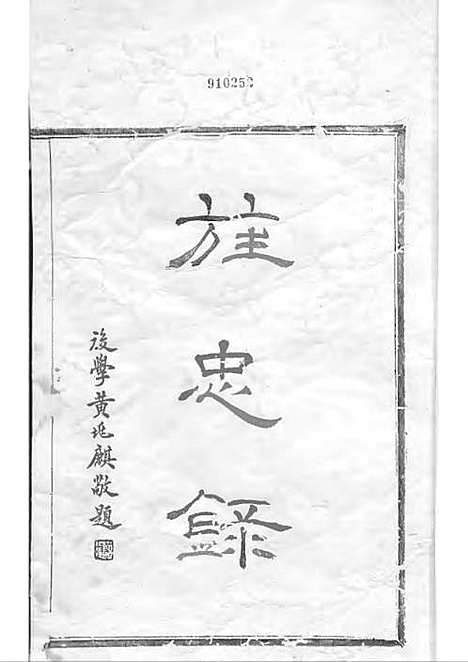 910252
旌忠錄
後學黃兆麒敬題